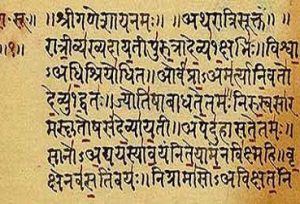 ॥श्रीगणेशायनमः॥ ॥अथरात्रिसूक्तं॥
॥१॥ रात्रीव्यख्यदायतीपुरुत्रादेव्य१क्षभिः॥विश्वा
अधिश्रियोधित॥ओर्वप्राअमर्त्यानिवतो
देव्यु१द्वतः॥ज्योतिषाबाधतेतमः॥निरुस्वसार
मस्कृतोषसंदेव्यायती॥अपेदुहासतेतमः॥
सानोअद्ययस्यावयंनितेयामन्नविक्ष्महि॥वृ
क्षेनवसतिंवयः॥निग्रामासोअविक्षतनि